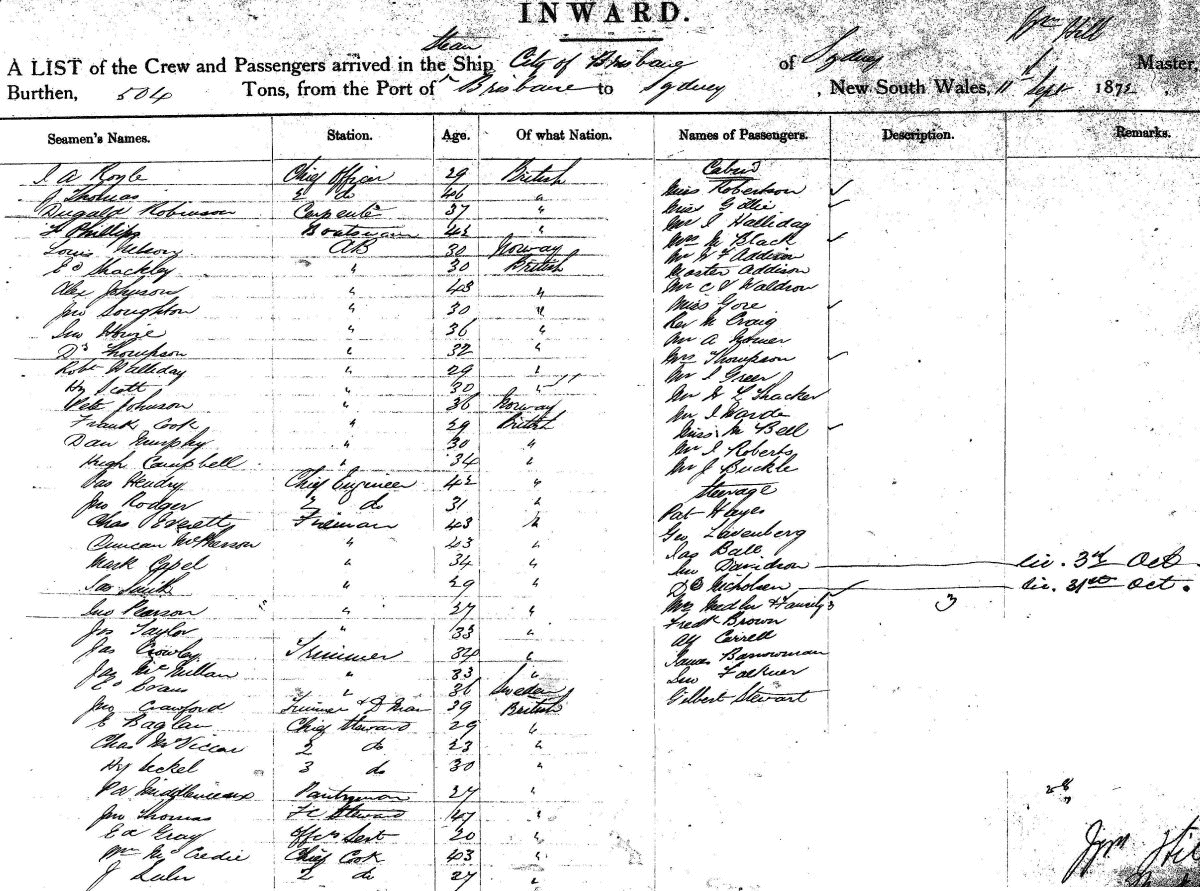 INWARD.
Steam Wm Hill
A LIST of the Crew and Passengers arrived in the Ship City of Brisbane of Sydney Master,
Burthen, 504 Tons, from the Port of Brisbane to Sydney, New South Wales, 11 Sept 1872.
Seamen's Names. Station. Age. Of what Nation. Names of Passengers. Description. Remarks.
Cabin
J A Royle Chief Officer 29 British Miss Robertson ✓
J Thomas 2 do 46 " Miss Gillie ✓
Dugald Robinson Carpenter 37 " Mr J Halliday
H Phillips Boatswain 42 " Mrs M Black ✓
Louis AB 30 Norway Mr W F Addison
Ed Shackley " 30 British Master Addison
Alex Johnson " 43 " Mr C V Waldron
Jno Boughton " 30 " Miss Gore ✓
Jno Howie " 36 " Rev M Craig
Dd Thompson " 32 " Mr A
Robt Halliday " 29 " Mrs Thompson ✓
Hy Scott " 30 " Mr J Green
Pete Johnson " 36 Norway Mr W L Thacker
Frank Cook " 29 British Mr J Warde
Dan Murphy " 30 " Miss M Bell ✓
Hugh Campbell " 34 " Mr J Roberts
Jas Hendry Chief Engineer 42 " Mr J Buckle
Steerage
Jno Rodger 2 do 31 " Pat Hayes
Chas Everett Fireman 43 " Geo Lavenberg
Duncan McPherson " 43 " Jas Ball
Mark " 34 " Jno Davidson lic. 3rd Oct
Jas Smith " 29 " Dd Nicholson lic. 31st Oct.
Jno Pearson " 27 " Mrs Medler & Family 3 ✓ 3
Jos Taylor " 33 " Fredk Brown
Jas Crowley Trimmer 34 " Alf Carrell
Jas McMillan " 33 " James Barrowman
Ed Evans " 36 Sweden Jno Falkner
Jno Crawford Trimmer & D Man 39 British Gilbert Stewart
E Baglan Chief Steward 29 "
Chas McVicar 2 do 23 "
Hy 3 do 30 "
Pantryman 27 "
Jno Thomas F C Steward 47 "
Ed Gray Offcs Servt 20 "
Wm McCredie Chief Cook 43 " Wm Hill
J Lalor 2 do 27 "